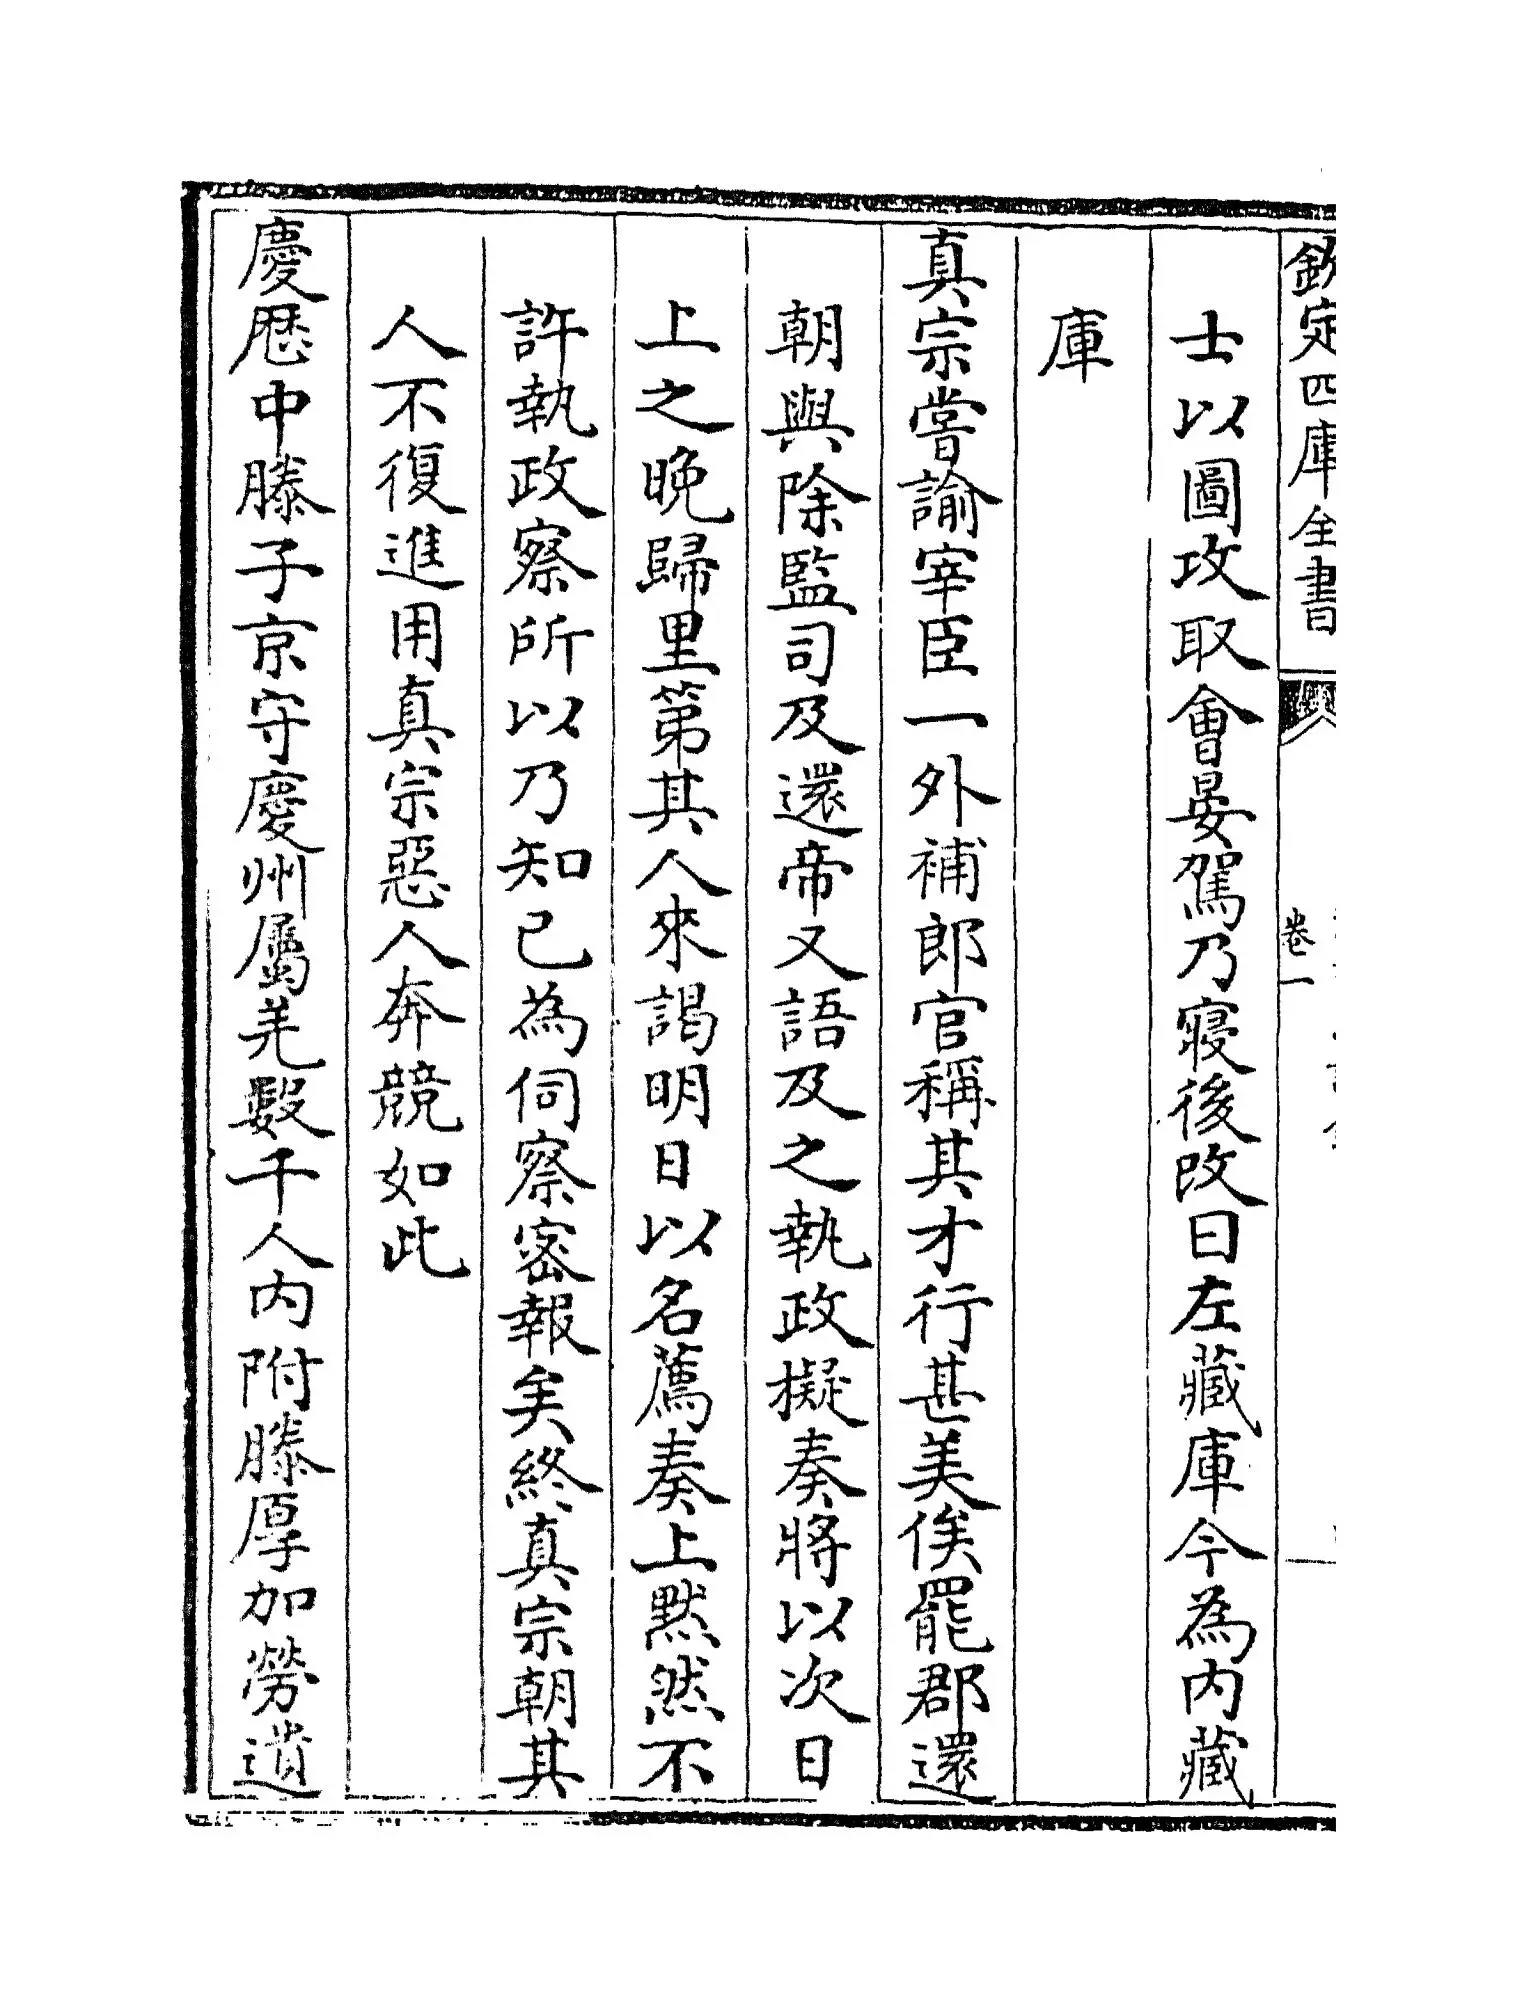 欽定四庫全書
卷一
士以圖攻取會晏駕乃寢後改曰左藏庫今為内藏
庫
真宗嘗諭宰臣一外補郎官稱其才行甚美俟罷郡還
朝與除監司及還帝又語及之執政擬奏將以次日
上之晚歸里第其人來謁明日以名薦奏上黙然不
許執政察所以乃知已為伺察密報矣終真宗朝其
人不復進用真宗惡人奔競如此
慶厯中滕子京守慶州屬羌數千人内附滕厚加勞遺